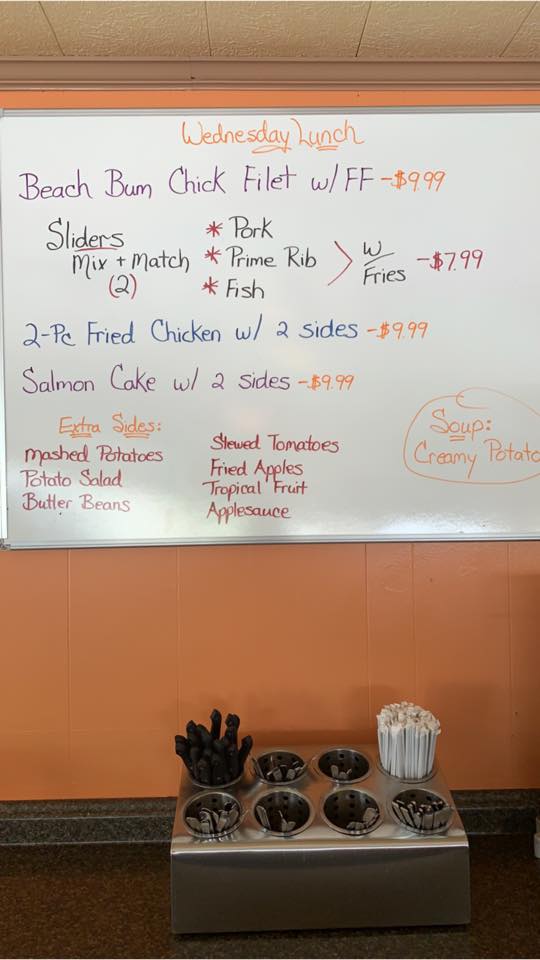 Wednesday Lunch
Beach Bum Chick Filet w/ FF - $9.99
Sliders
Mix + Match
(2)
* Pork
* Prime Rib
* Fish
W/
Fries
- $7.99
2-Pc Fried Chicken w/ 2 sides - $9.99
Salmon Cake w/ 2 sides - $9.99
Extra Sides:
mashed Potatoes
Potato Salad
Butter Beans
Stewed Tomatoes
Fried Apples
Tropical Fruit
Applesauce
Soup:
Creamy Potato